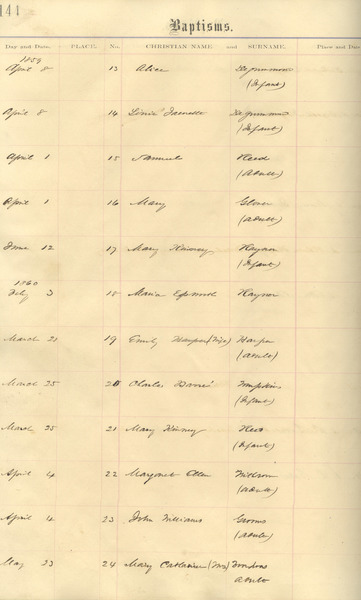 141
Baptisms.
Day and Date. PLACE. No. CHRISTIAN NAME and SURNAME. Place and Dat
1859
April 8 13 Alice
(Infant)
April 8 14
(Infant)
April 1 15 Samuel Reed
(Adult)
April 1 16 Mary Glover
(Adult)
June 12 17 Mary Kinney Haynor
(Infant)
1860
Feby 3 18 Maria Haynor
March 21 19 Emily Harper (Mrs) Harper
(adult)
March 25 20 Charles Tompkins
(Infant)
March 25 21 Mary Kinney
(Infant)
April 4 22 Margaret Ellen
(adult)
April 4 23 John Williams Grooms
(adult)
May 23 24 Mary Catharine (Mrs)
Adult